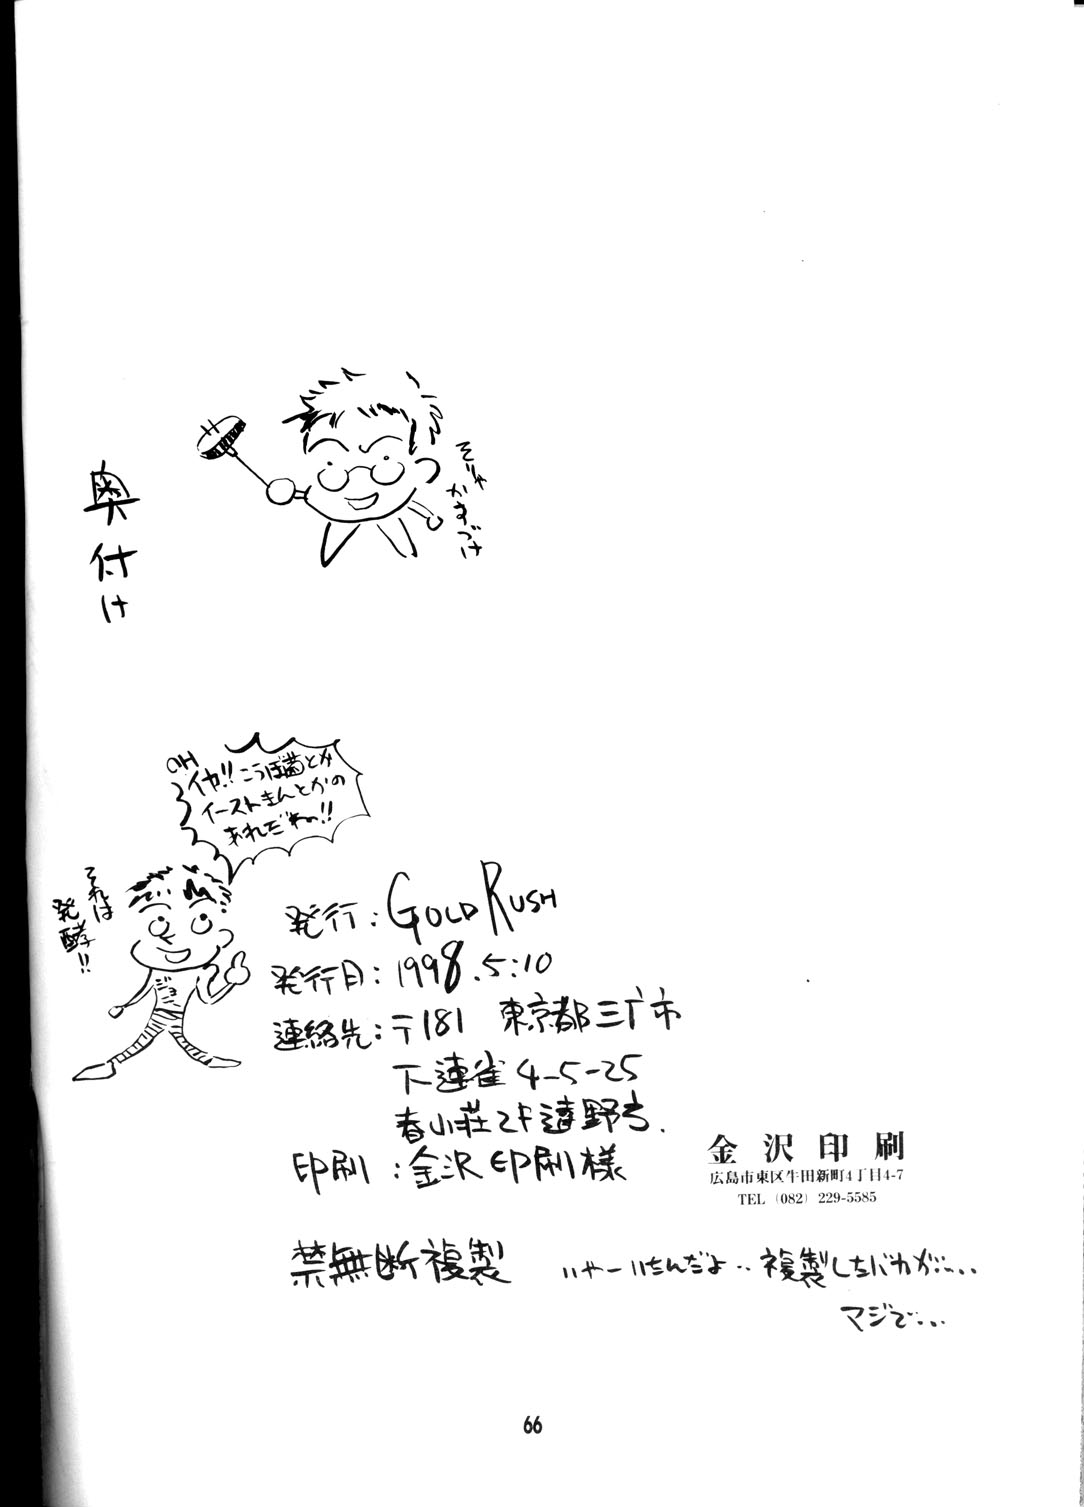 奥付け
そりゃ
かすづけ
OH
イヤ!!こうぼ菌とか
イーストきんとかの
あれだねっ!!
それは
発酵!!
発行:GOLD RUSH
発行日:1998.5.10
連絡先:〒181 東京都三鷹市
下連雀4-5-25
春山荘2F遠野方.
印刷:金沢印刷様
金沢印刷
広島市東区牛田新町4丁目4-7
TEL (082) 229-5585
禁無断複製
いやーいたんだよ‥複製したバカが‥‥
マジで…
66